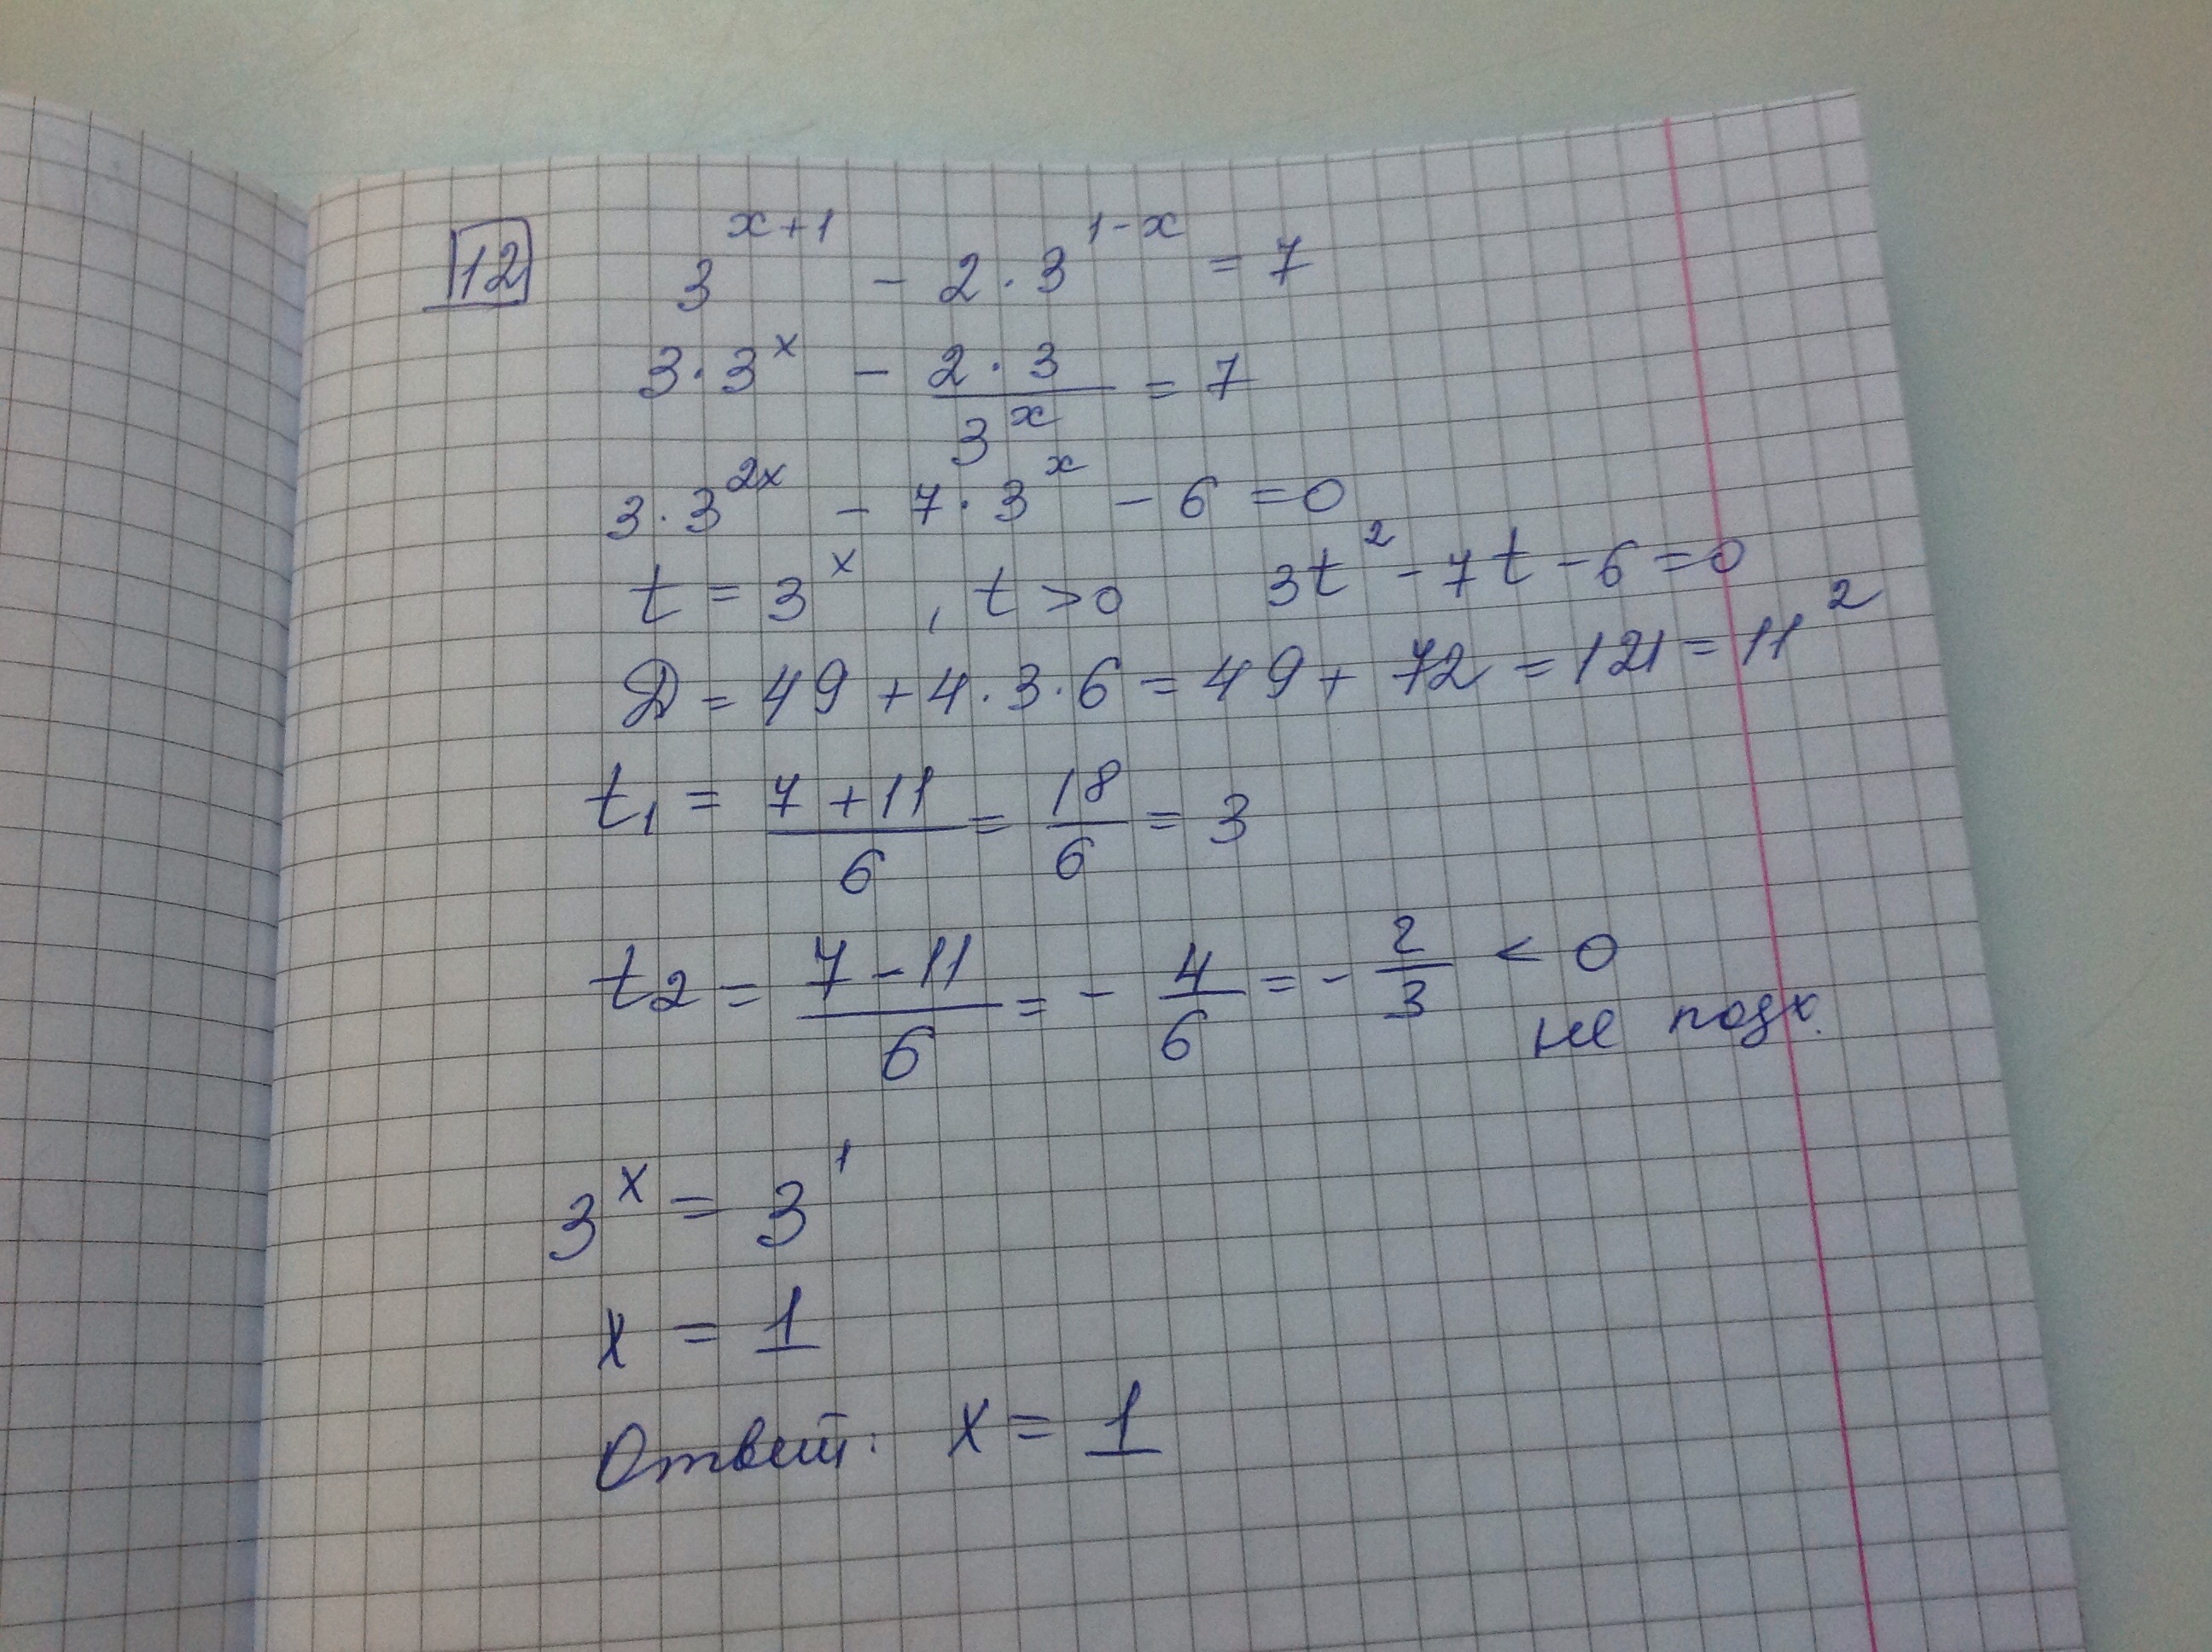 12 3^{x+1} - 2 · 3^{1-x} = 7
3 · 3^x - \frac{2 · 3}{3^x} = 7
3 · 3^{2x} - 7 · 3^x - 6 = 0
t = 3^x , t > 0 3t^2 - 7t - 6 = 0
D = 49 + 4 · 3 · 6 = 49 + 72 = 121 = 11^2
t_1 = \frac{7 + 11}{6} = \frac{18}{6} = 3
t_2 = \frac{7 - 11}{6} = - \frac{4}{6} = - \frac{2}{3} < 0
не подх.
3^x = 3^1
x = 1
Ответ: x = 1